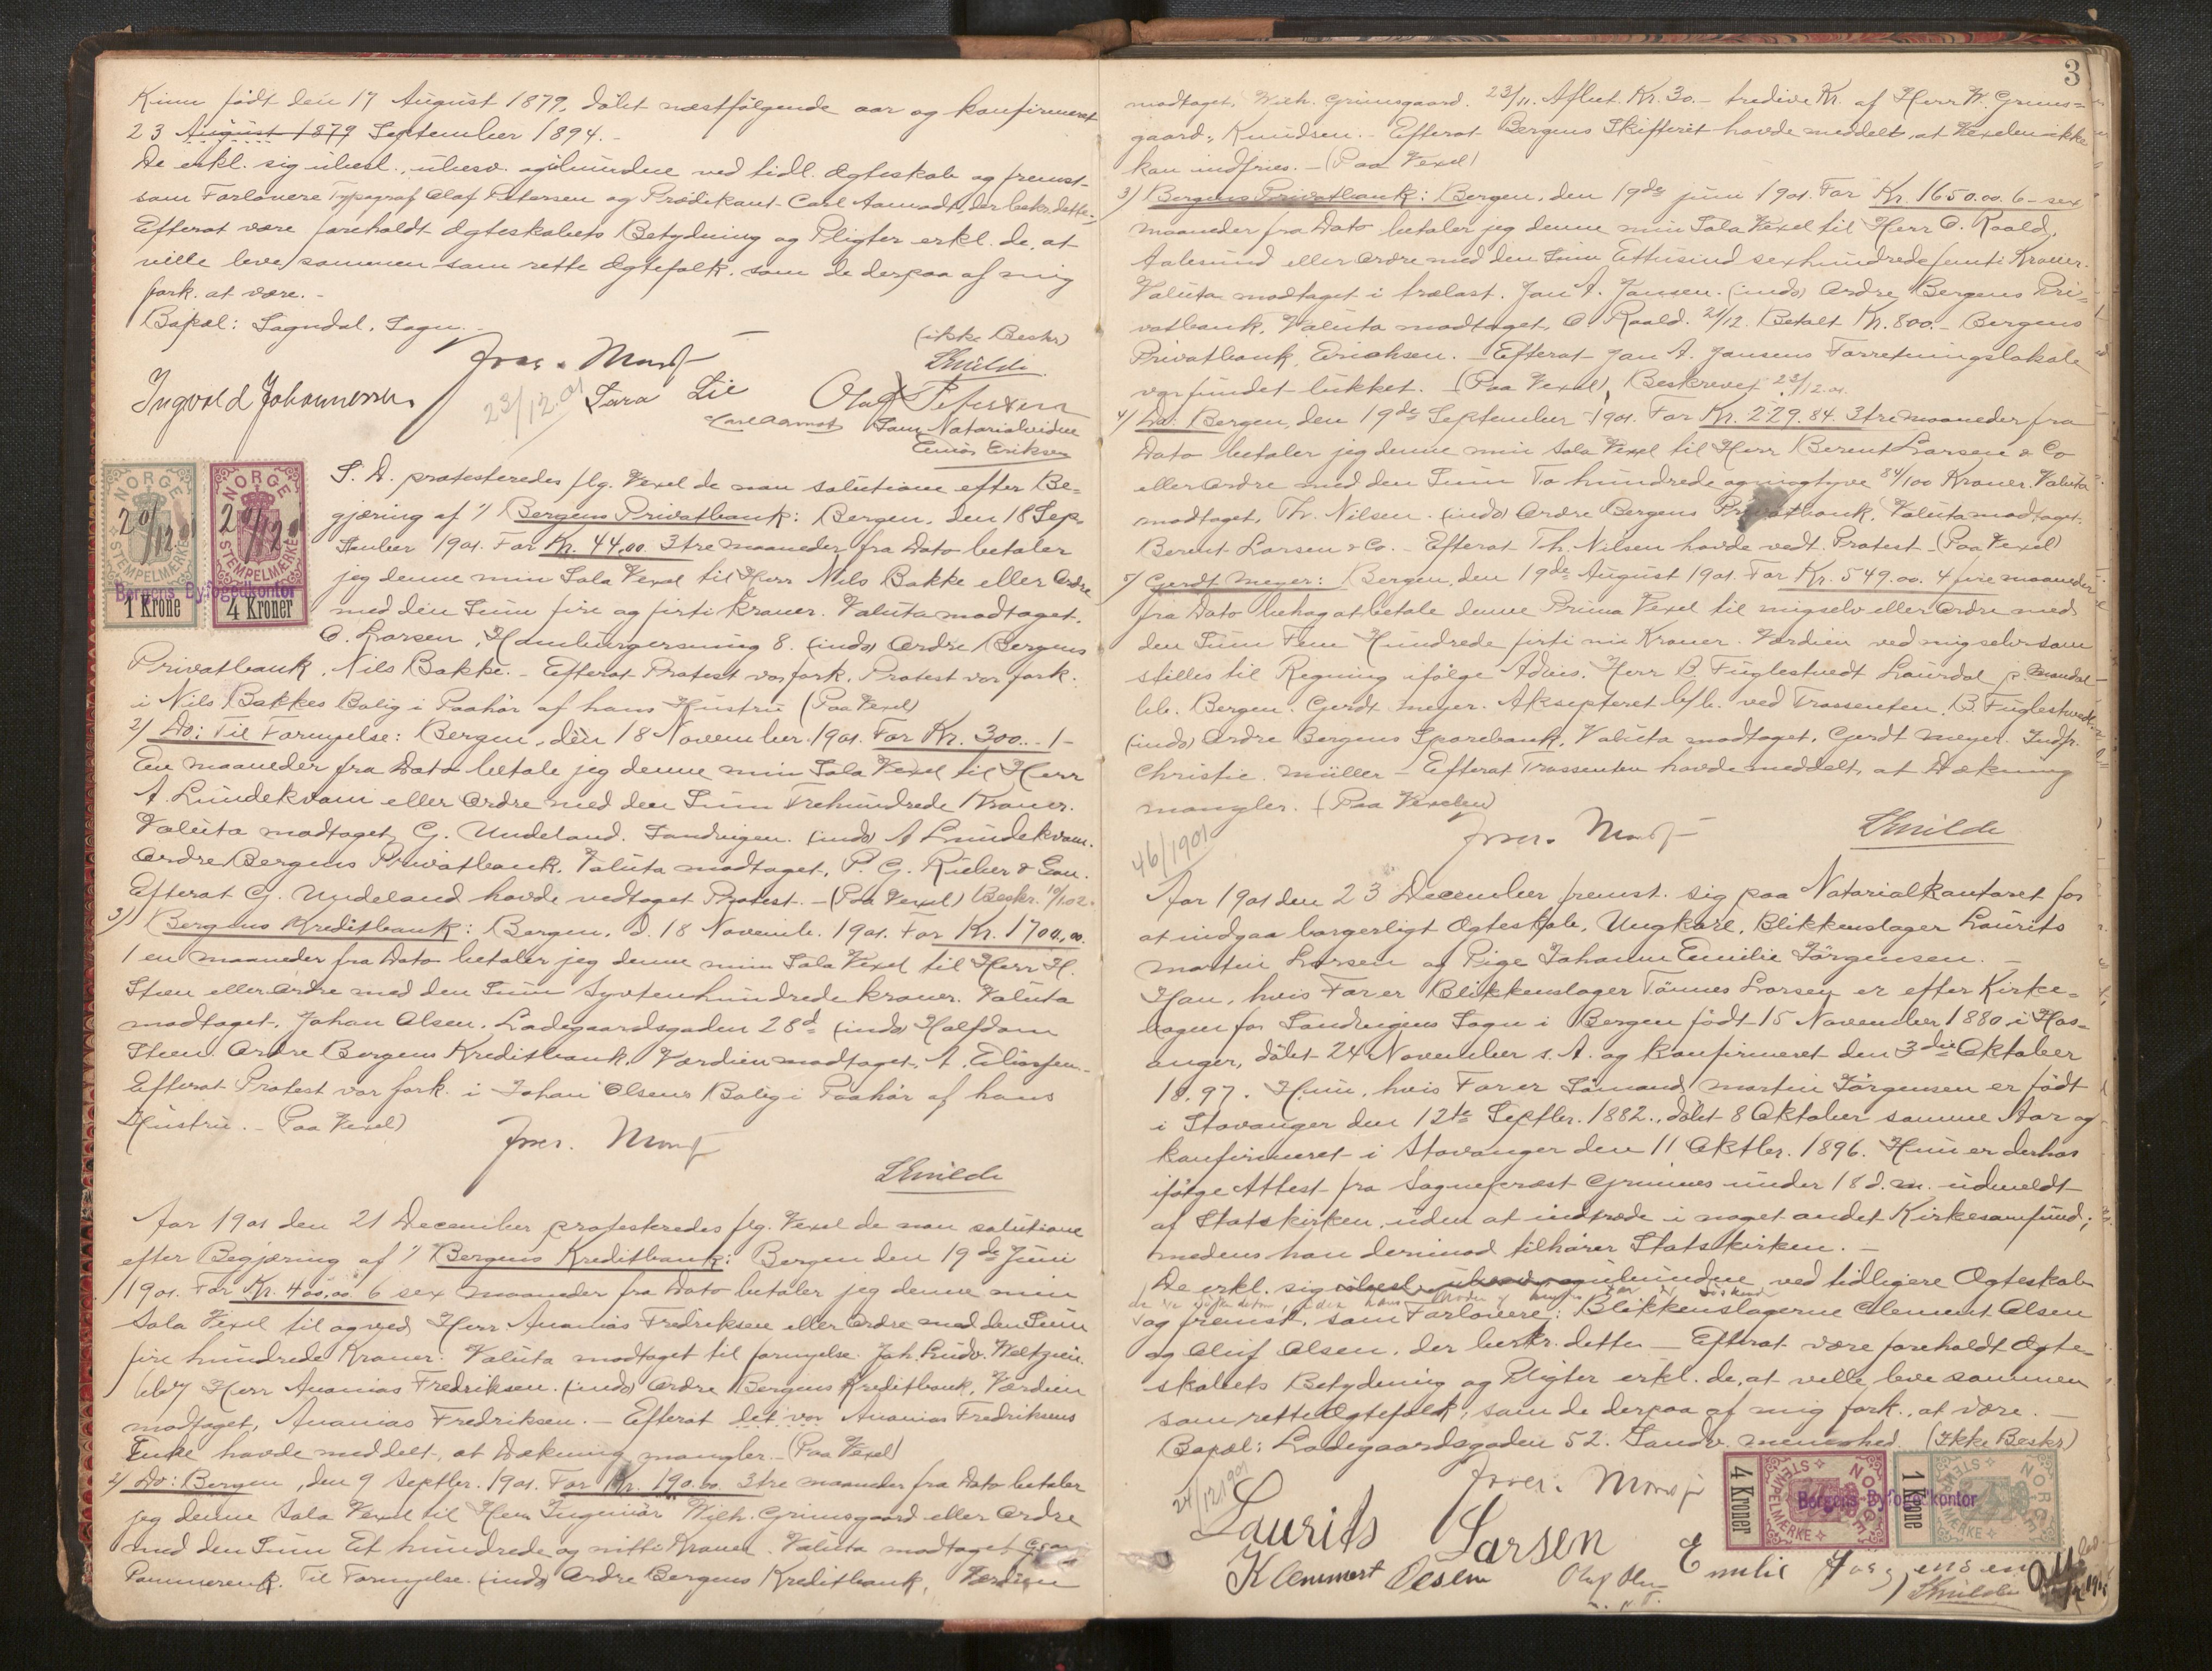 Kinn født den 17 August 1879, døbt næstfølgende aar og konfirmeret
23 August 1879 September 1894. -
De erkl. sig ubesl., ubesv. og ubundne ved tidl. Ægteskab og fremst-
som Forlovere Typograf Olaf Petersen og Prædikant Carl Aamodt, der bekr. dette;
Efterat være foreholdt Ægteskabets Betydning og Pligter erkl. de, at
ville leve sammen som rette Ægtefolk, som de derpaa af mig
fork. at være. -
Bopæl: Sogndal, Sogn. -
(ikke Beskr)
Smilde
Ingvald Johannessen
23/12.01
Sara Lie
Olaf Petersen
Carl Aamot
Som Notarialvidne
Einar Eriksen
NORGE
STEMPELMÆRKE
20/12 01
1 Krone
NORGE
STEMPELMÆRKE
20/12 01
4 Kroner
Bergens Byfogedkontor
S. D. protesteredes flg. Vexel de non solutione efter Be-
gjæring af % Bergens Privatbank: Bergen, den 18 Sep-
tember 1901. For Kr. 44,00. 3 tre maaneder fra Dato betaler
jeg denne min Sola Vexel til Herr Nils Bakke eller Ordre
med den Sum fire og firti kroner. Valuta modtaget.
O. Larsen, Hamburgersmug 8. (indo) Ordre Bergens
Privatbank, Nils Bakke. - Efterat Protest var fork. Protest var fork.
i Nils Bakkes Bolig i Paahør af hans Hustru (Paa Vexel)
2) Do: Til Fornyelse: Bergen, den 18 November 1901. For Kr. 300.- 1-
En maaneder fra Dato betale jeg denne min Sola Vexel til Herr
A. Lundekvam eller Ordre med den Sum Trehundrede Kroner.
Valuta modtaget, G. Undeland. Sandvigen. (indo) A Lundekvam.
Ordre Bergens Privatbank, Valuta modtaget, P. G. Rieber & Søn.
Efterat G. Undeland havde vedtaget Protest. - (Paa Vexel) Beskr. 10/1 02.
3) Bergens Kreditbank: Bergen, d. 18 Novemb. 1901. For Kr. 1700,00.
1 en maaneder fra Dato betaler jeg denne min Sola Vexel til Herr H.
Steen eller Ordre med den Sum Syvtenhundrede kroner. Valuta
modtaget, Johan Olsen, Ladegaardsgaden 28d (indo) Halfdan
Steen. Ordre Bergens Kreditbank, Værdien modtaget, A.
Efterat Protest var fork. i Johan Olsens Bolig i Paahør af hans
Hustru. - Paa Vexel)
Smilde
Aar 1901 den 21 December protesteredes flg. Vexel de non solutione
efter Begjæring af % Bergens Kreditbank: Bergen den 19de Juni
1901. For Kr. 400,00 6 sex maaneder fra Dato betaler jeg denne min
Sola Vexel til og ved Herr Ananias Fredriksen eller Ordre med den Sum
fire hundrede Kroner. Valuta modtaget til fornyelse. Joh. Ludv. Weltzien.
Herr Ananias Fredriksen. (indo) Ordre Bergens Kreditbank, Værdien
modtaget, Ananias Fredriksen. - Efterat det var Ananias Fredriksens
Enke havde meddelt, at Dækning mangler. - (Paa Vexel)
2) Do: Bergen, den 9 Septbr. 1901. For Kr. 190.00 3 tre maaneder fra Dato betaler
jeg denne Sola Vexel til Herr Ingeniør Wilh. Grimsgaard eller Ordre
med den Sum Et hundrede og nitti Kroner. Valuta modtaget
Pommerenk. Til Fornyelse. (indo) Ordre Bergens Kreditbank, Værdien
3
modtaget, Wilh. Grimsgaard. 23/11. Afbet. Kr. 30.- tredive Kr. af Herr W. Grims-
gaard, Knudsen. - Efterat Bergens Skifteret havde meddelt, at Vexelen ikke
kan indfries. - (Paa Vexel)
3) Bergens Privatbank: Bergen, den 19de juni 1901. For Kr. 1650.00. 6 - sex
maaneder fra Dato betaler jeg denne min Sola Vexel til Herr O. Roald,
Aalesund eller Ordre med den Sum Ettusind sexhundrede femti Kroner.
Valuta modtaget i trælast. Jan A. Jansen. (indo) Ordre Bergens Pri-
vatbank, Valuta modtaget, O. Roald. 21/12. Betalt Kr. 800.- Bergens
Privatbank, Erichsen. - Efterat Jan A. Jansens Forretningslokale
var fundet lukket. - (Paa Vexel), Beskrevet 23/12.01.
4) Do: Bergen, den 19de September 1901. For Kr. 229.84. 3 tre maaneder fra
Dato betaler jeg denne min Sola Vexel til Herr Berent Larsen & Co
eller Ordre med den Sum To hundrede og niogtyve 84/100 Kroner. Valuta
modtaget, Th. Nilsen. (indo) Ordre Bergens Privatbank, Valuta modtaget.
Berent Larsen & Co. - Efterat Th. Nilsen havde vedt. Protest - (Paa Vexel)
5) Gerdt Meyer: Bergen, den 19de August 1901. For Kr. 549.00. 4 fire maaneder
fra Dato behag at betale denne Prima Vexel til mig selv eller Ordre med
den Sum Fem Hundrede firti ni Kroner. Værdien ved mig selv som
stilles til Regning ifølge Advis. Herr B. Fuglestvedt Laurdal p. Mandal
bb. Bergen. Gerdt Meyer. Aksepteret b/b. ved Trassenten, B Fuglestvedt.
(indo) Ordre Bergens Sparebank, Valuta modtaget, Gerdt Meyer. Indfr.
Christie Müller - Efterat Trassenten havde meddelt, at Dækning
mangler. (Paa Vexelen)
Smilde
46/1901
Aar 1901 den 23 December fremst. sig paa Notarialkontoret for
at indgaa borgerligt Ægteskab, Ungkarl, Blikkenslager Laurits
Martin Larsen og Pige Johanne Emilie Jörgensen. -
Han, hvis Far er Blikkenslager Tönnes Larsen er efter Kirke-
bogen for Sandvigens Sogn i Bergen født 15 November 1880 i Hos-
anger, døbt 24 November s. A. og konfirmeret den 3die Oktober
1897. Hun, hvis Far er Sømand Martin Jørgensen er født
i Stavanger den 12te Septbr. 1882, døbt 8 Oktober samme Aar og
konfirmeret i Stavanger den 11 Oktbr. 1896. Hun er derhos
ifølge Attest fra Sogneprest Grimnes under 18 d. m. udmeldt
af Statskirken, uden at indtræde i noget andet Kirkesamfund;
medens han derimod tilhører Statskirken. -
De erkl. sig ubesl., ubesv. og ubundne ved tidligere Ægteskab
og fremst. som Forlovere: Blikkenslagerne Clement Olsen
og Oluf Olsen, der bekr. dette. - Efterat være foreholdt Ægte-
skabets Betydning og Pligter erkl. de, at ville leve sammen
som rette Ægtefolk, som de derpaa af mig fork. at være. -
Bopæl: Ladegaardsgaden 52. Sandv. menighed. (Ikke Beskr)
24/12 1901
Laurits Larsen
Emilie Jörgensen
Klemmert Olsen
Oluf Olsen
Smilde
4 Kroner
STEMPELMÆRKE
NORGE
1 Krone
STEMPELMÆRKE
NORGE
Bergens Byfogedkontor